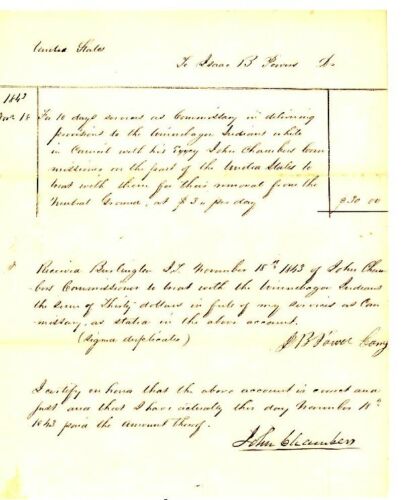 United States
To Isaac B Powers Dr
1843
Nov 18 For 10 days services as Commissary in delivering
provisions to the Winnebago Indians while
in Council with his Excy John Chambers Com
missioner on the part of the United States to
treat with them for their removal from the
Neutral Ground, at $3 per day
$30 00
Received Burlington I.T. November 18th 1843 of John Cham
bers Commissioner to treat with the Winnebago Indians
the sum of Thirty dollars in full of my services as Com
missary, as stated in the above account.
(signed duplicates)
I B Power
I certify on honor that the above account is correct and
just and that I have actually this day November 18th
1843 paid the amount thereof.
John Chambers